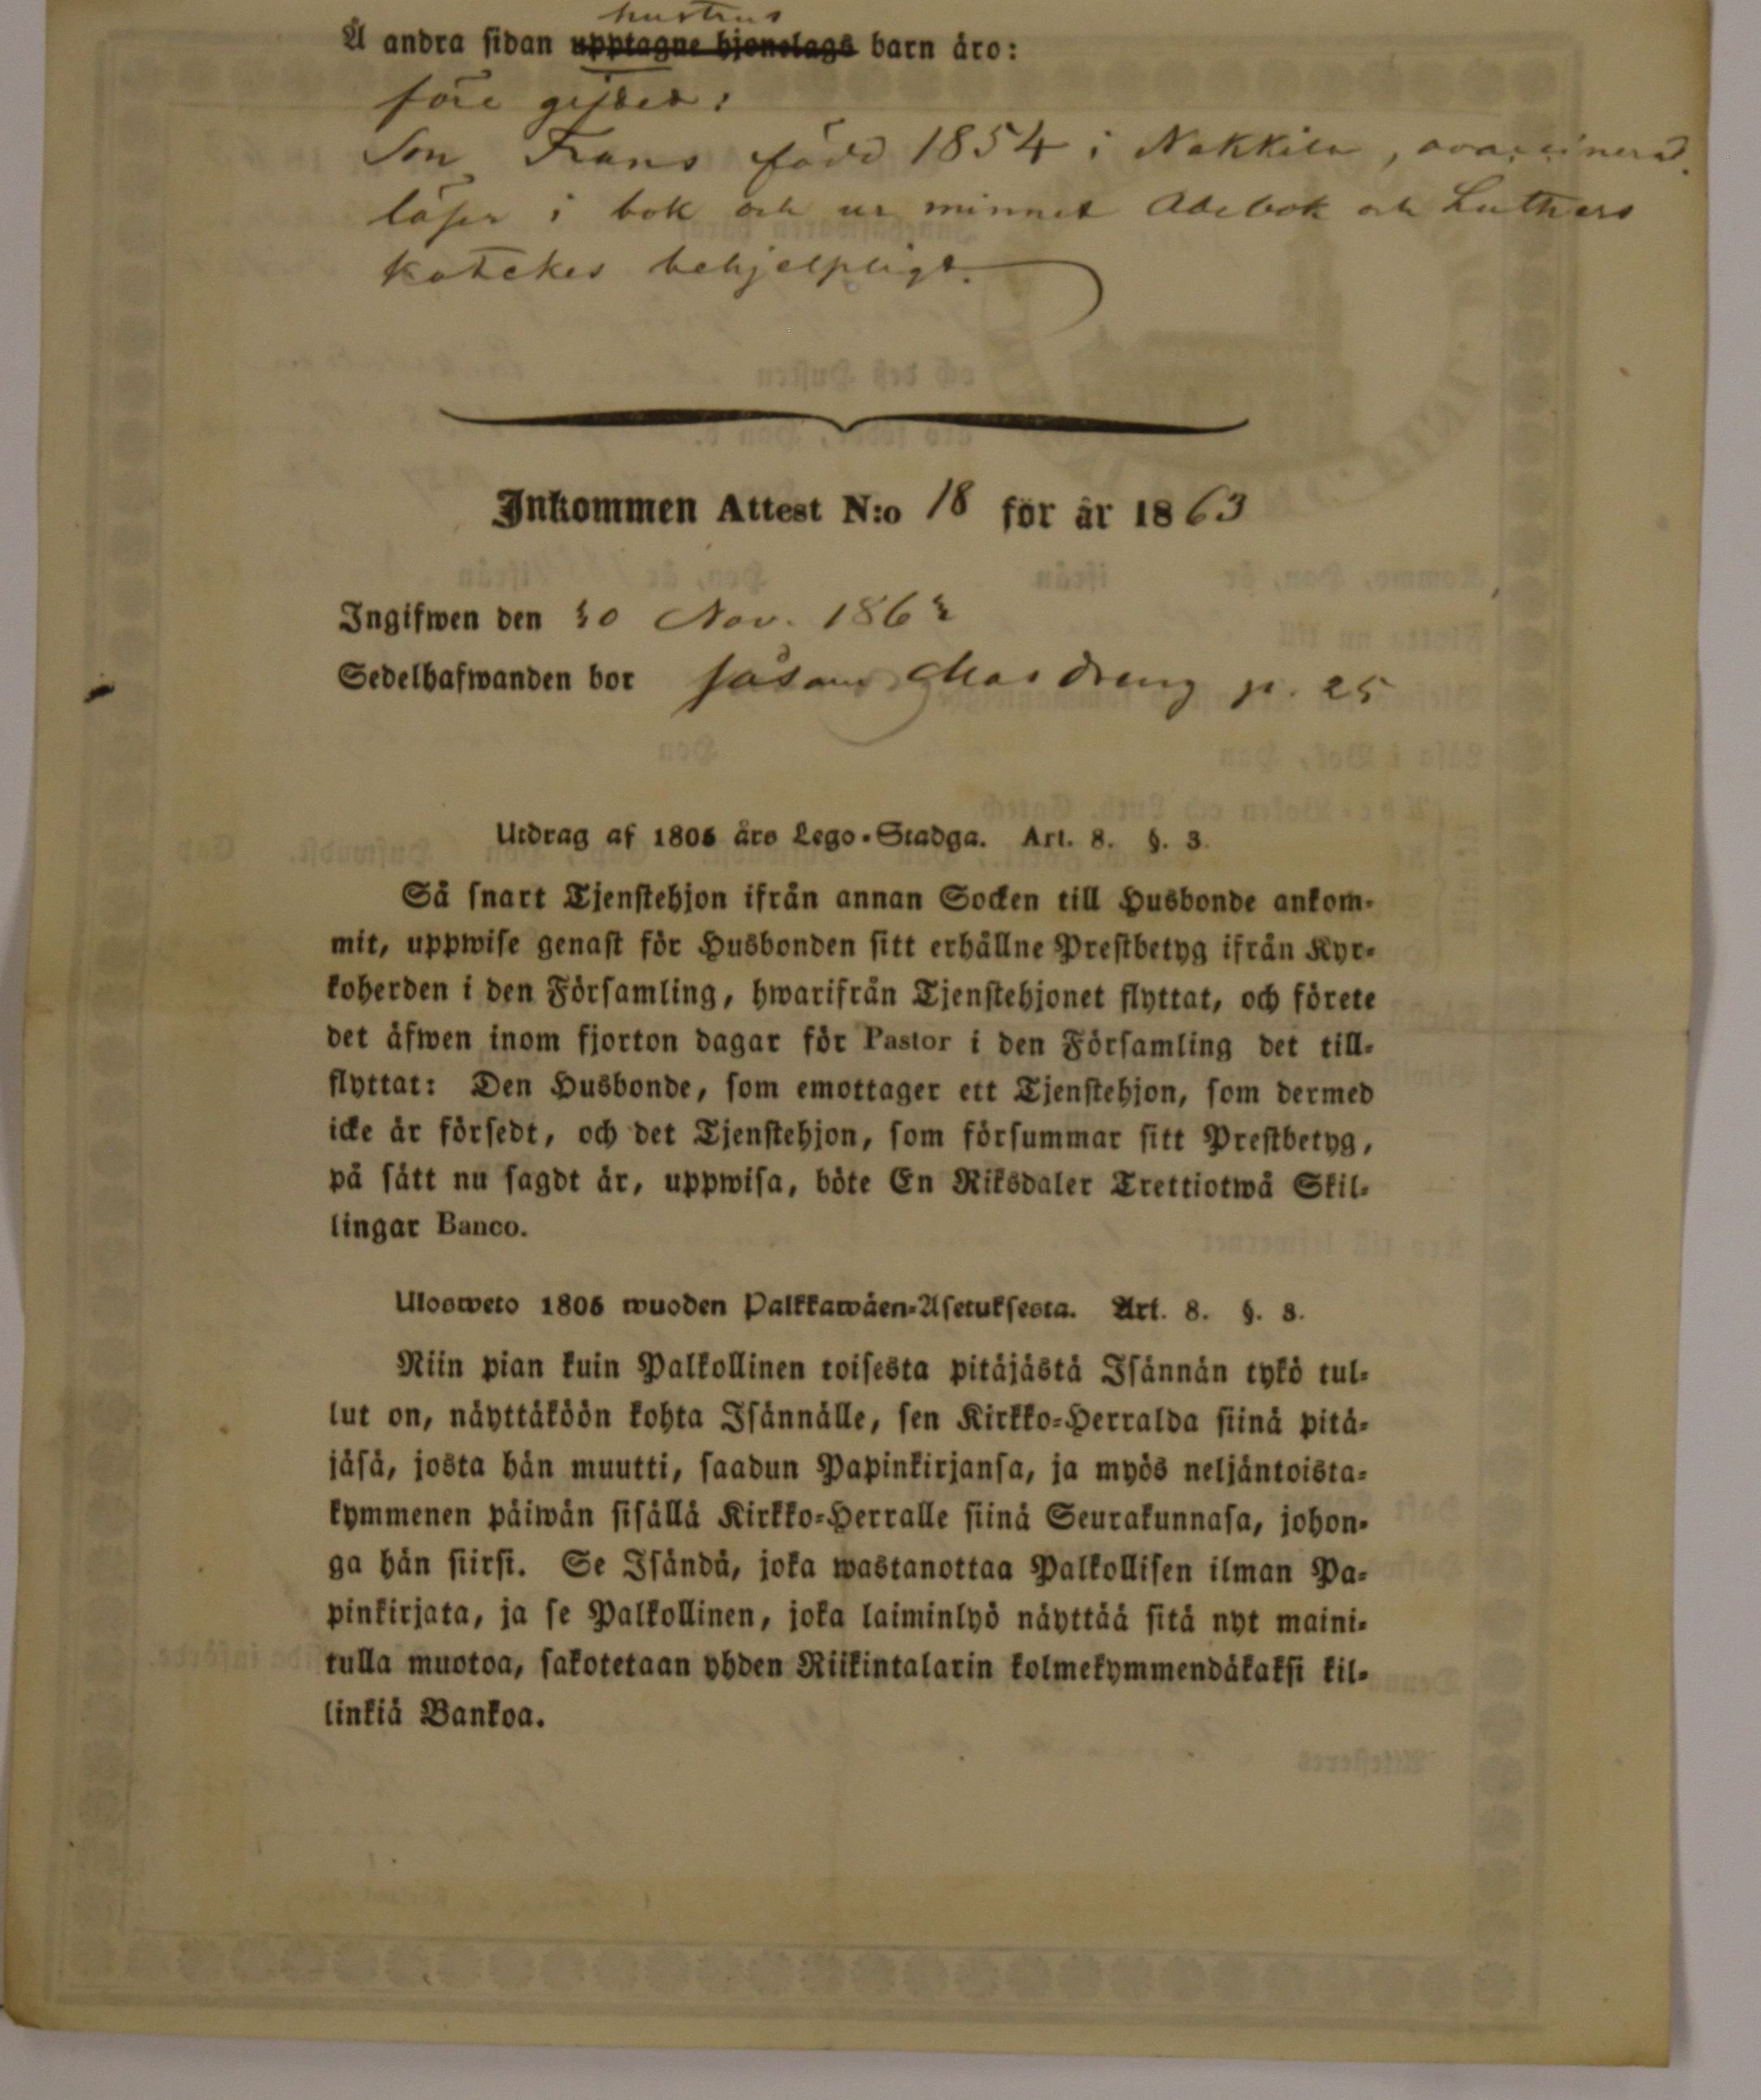 hustrus
Å andra sidan upptagne hjonelags barn äro:
före giftet:
Son Frans född 1854 i Nakkila, ovaccinerad.
läser i bok och ur minnet Abcbok och Luthers
katekes behjelpligt.
Inkommen Attest N:o 18 för år 1863
Ingifwen den 30 Nov. 1863
Sedelhafwanden bor p. 25
Utdrag af 1805 års Lego-Stadga. Art. 8. §. 3.
Så snart Tjenstehjon ifrån annan Socken till Husbonde ankom-
mit, uppwise genast för Husbonden sitt erhållne Prestbetyg ifrån Kyr-
koherden i den Församling, hwarifrån Tjenstehjonet flyttat, och förete
det äfwen inom fjorton dagar för Pastor i den Församling det till-
flyttat: Den Husbonde, som emottager ett Tjenstehjon, som dermed
icke är försedt, och det Tjenstehjon, som försummar sitt Prestbetyg,
på sätt nu sagdt är, uppwisa, böte En Riksdaler Trettiotwå Skil-
lingar Banco.
Ulosweto 1805 wuoden Palkkawäen-Asetuksesta. Art. 8. §. 3.
Niin pian kuin Palkollinen toisesta pitäjästä Isännän tykö tul-
lut on, näyttäköön kohta Isännälle, sen Kirkko-Herralda siinä pitä-
jäsä, josta hän muutti, saadun Papinkirjansa, ja myös neljäntoista-
kymmenen päiwän sisällä Kirkko-Herralle siinä Seurakunnasa, johon-
ga hän siirsi. Se Isändä, joka wastanottaa Palkollisen ilman Pa-
pinkirjata, ja se Palkollinen, joka laiminlyö näyttää sitä nyt maini-
tulla muotoa, sakotetaan yhden Riikintalarin kolmekymmendäkaksi kil-
linkiä Bankoa.